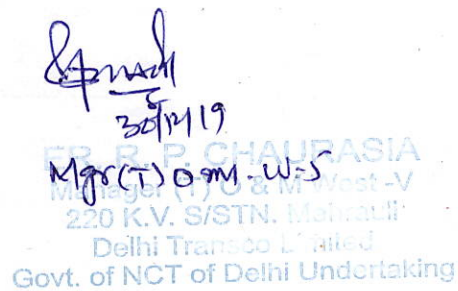 30/12/19
Mgr(T) O&M-W-5
ER. R. P. CHAURASIA
Manager (T) O & M West-V
220 K.V. S/STN. Mehrauli
Delhi Transco Limited
Govt. of NCT of Delhi Undertaking